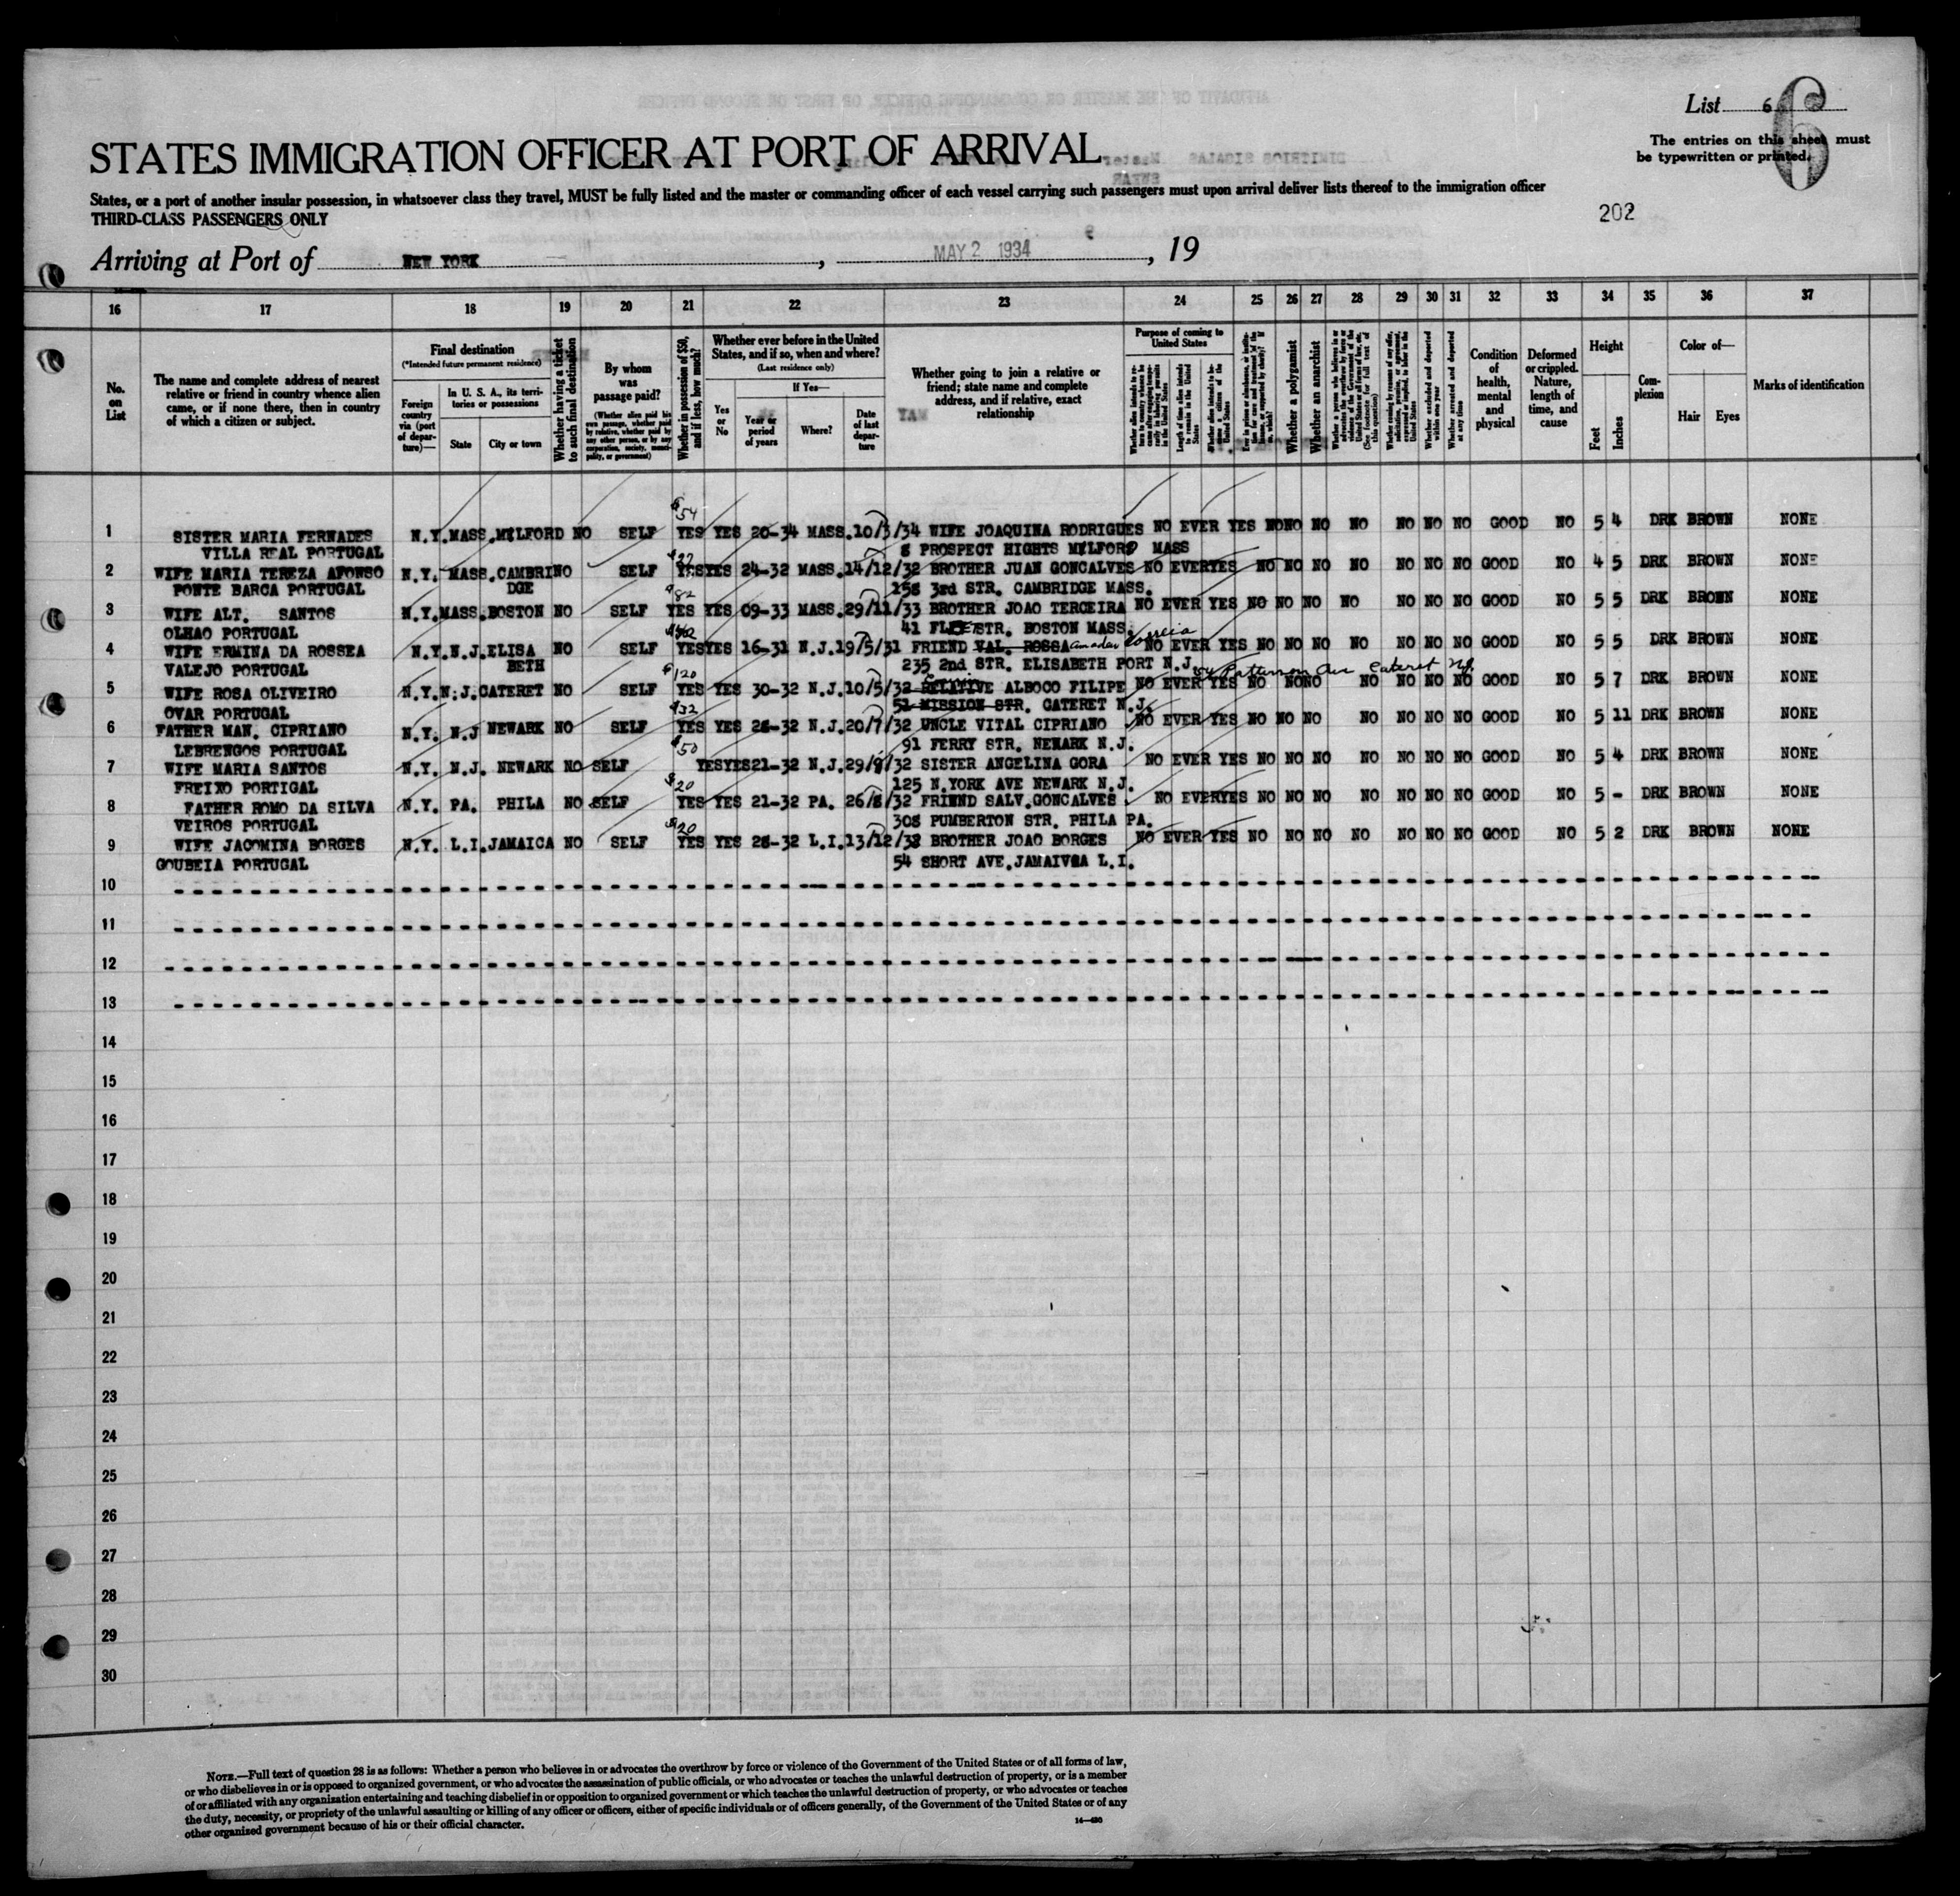 List 6
6
The entries on this sheet must
be typewritten or printed.
STATES IMMIGRATION OFFICER AT PORT OF ARRIVAL
States, or a port of another insular possession, in whatsoever class they travel, MUST be fully listed and the master or commanding officer of each vessel carrying such passengers must upon arrival deliver lists thereof to the immigration officer
THIRD-CLASS PASSENGERS ONLY
202
Arriving at Port of NEW YORK, MAY 2 1934, 19
16 17 18 19 20 21 22 23 24 25 26 27 28 29 30 31 32 33 34 35 36 37
No. on List
The name and complete address of nearest
relative or friend in country whence alien
came, or if none there, then in country
of which a citizen or subject.
Final destination
(*Intended future permanent residence)
Foreign country via (port of departure)—
In U. S. A., its territories or possessions
State
City or town
Whether having a ticket to such final destination
By whom was passage paid?
(Whether alien paid his own passage, whether paid by relative, whether paid by any other person, or by any corporation, society, municipality, or government)
Whether in possession of $50, and if less, how much?
Whether ever before in the United
States, and if so, when and where?
(Last residence only)
Yes or No
If Yes—
Year or period of years
Where?
Date of last departure
Whether going to join a relative or
friend; state name and complete
address, and if relative, exact
relationship
Purpose of coming to United States
Length of time alien intends to remain in the United States
Whether a polygamist
Whether an anarchist
Whether excluded and deported within one year
Whether arrested and deported at any time
Condition of health, mental and physical
Deformed or crippled. Nature, length of time, and cause
Height
Feet
Inches
Complexion
Color of—
Hair
Eyes
Marks of identification
$54
1 SISTER MARIA FERNADES N.Y. MASS. MILFORD NO SELF YES YES 20-34 MASS. 10/3/34 WIFE JOAQUINA RODRIGUES NO EVER YES NO NO NO NO NO NO NO GOOD NO 5 4 DRK BROWN NONE
VILLA REAL PORTUGAL 8 PROSPECT HIGHTS MILFORD MASS
2 WIFE MARIA TEREZA AFONSO N.Y. MASS. CAMBRI NO SELF YES YES 24-32 MASS. 14/12/32 BROTHER JUAN GONCALVES NO EVER YES NO NO NO NO NO NO NO GOOD NO 4 5 DRK BROWN NONE
PONTE BARCA PORTUGAL DGE 158 3rd STR. CAMBRIDGE MASS.
$82
3 WIFE ALT. SANTOS N.Y. MASS. BOSTON NO SELF YES YES 09-33 MASS. 29/11/33 BROTHER JOAO TERCEIRA NO EVER YES NO NO NO NO NO NO NO GOOD NO 5 5 DRK BROWN NONE
OLHAO PORTUGAL 41 FLEETSTR. BOSTON MASS.
4 WIFE ERMINA DA ROSSEA N.Y. N.J. ELISA NO SELF YES YES 16-31 N.J. 19/5/31 FRIEND VAL. ROSSA Amadeu Correia NO EVER YES NO NO NO NO NO NO NO GOOD NO 5 5 DRK BROWN NONE
VALEJO PORTUGAL BETH 235 2nd STR. ELISABETH PORT N.J.
$120
5 WIFE ROSA OLIVEIRO N.Y. N.J. CATERET NO SELF YES YES 30-32 N.J. 10/5/32 RELATIVE ALBOCO FILIPE NO EVER YES NO NO NO NO NO NO NO GOOD NO 5 7 DRK BROWN NONE
OVAR PORTUGAL 51 MISSION STR. CATERET N.J.
$32
6 FATHER MAN. CIPRIANO N.Y. N.J NEWARK NO SELF YES YES 28-32 N.J. 20/7/32 UNCLE VITAL CIPRIANO NO EVER YES NO NO NO NO NO NO NO GOOD NO 5 11 DRK BROWN NONE
LEBRENGOS PORTUGAL 91 FERRY STR. NEWARK N.J.
$50
7 WIFE MARIA SANTOS N.Y. N.J. NEWARK NO SELF YES YES 21-32 N.J. 29/9/32 SISTER ANGELINA GORA NO EVER YES NO NO NO NO NO NO NO GOOD NO 5 4 DRK BROWN NONE
FREIXO PORTIGAL 125 N.YORK AVE NEWARK N.J.
$20
8 FATHER ROMO DA SILVA N.Y. PA. PHILA NO SELF YES YES 21-32 PA. 26/8/32 FRIEND SALV. GONCALVES NO EVER YES NO NO NO NO NO NO NO GOOD NO 5 - DRK BROWN NONE
VEIROS PORTUGAL 308 PUMBERTON STR. PHILA PA.
$20
9 WIFE JACOMINA BORGES N.Y. L.I. JAMAICA NO SELF YES YES 28-32 L.I. 13/12/32 BROTHER JOAO BORGES NO EVER YES NO NO NO NO NO NO NO GOOD NO 5 2 DRK BROWN NONE
GOUBEIA PORTUGAL 54 SHORT AVE. JAMAIVSA L.I.
10
11
12
13
14
15
16
17
18
19
20
21
22
23
24
25
26
27
28
29
30
NOTE.—Full text of question 28 is as follows: Whether a person who believes in or advocates the overthrow by force or violence of the Government of the United States or of all forms of law,
or who disbelieves in or is opposed to organized government, or who advocates the assassination of public officials, or who advocates or teaches the unlawful destruction of property, or is a member
of or affiliated with any organization entertaining and teaching disbelief in or opposition to organized government or which teaches the unlawful destruction of property, or who advocates or teaches
the duty, necessity, or propriety of the unlawful assaulting or killing of any officer or officers, either of specific individuals or of officers generally, of the Government of the United States or of any
other organized government because of his or their official character.
14—480